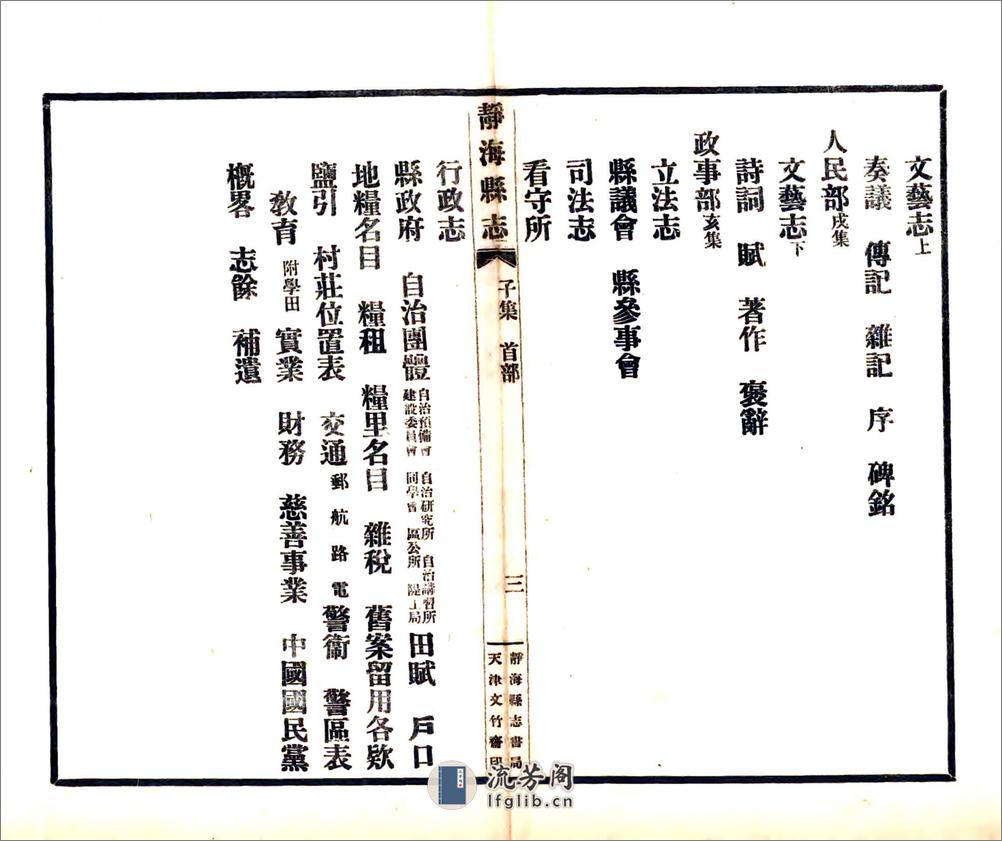 文藝志上
奏議　傳記　雜記　序　碑銘
人民部戌集
文藝志下
詩詞　賦　著作　褒辭
政事部亥集
立法志
縣議會　縣參事會
司法志
看守所
靜海縣志　子集　首部　三　靜海縣志書局　天津文竹齋印
行政志
縣政府　自治團體　自治預備會　自治研究所　自治講習所　建設委員會　同學會　區公所　隄工局　田賦　戶口
地糧名目　糧租　糧里名目　雜稅　舊案留用各欵
鹽引　村莊位置表　交通郵航路電　警衞　警區表
敎育附學田　實業　財務　慈善事業　中國國民黨
概畧　志餘　補遺
流芳阁
lfglib.cn